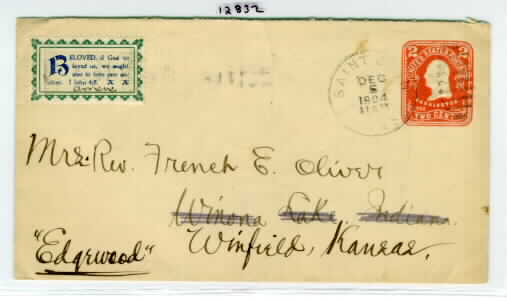 12832
BELOVED, if God so
loved us, we ought
also to love one an-
other. I John 4:11.
SAINT
DEC
5
1904
2 UNITED STATES POSTAGE 2
WASHINGTON
TWO CENTS
Mrs. Rev. French E. Oliver
Winona Lake, Indiana.
Winfield, Kansas,
"Edgewood"